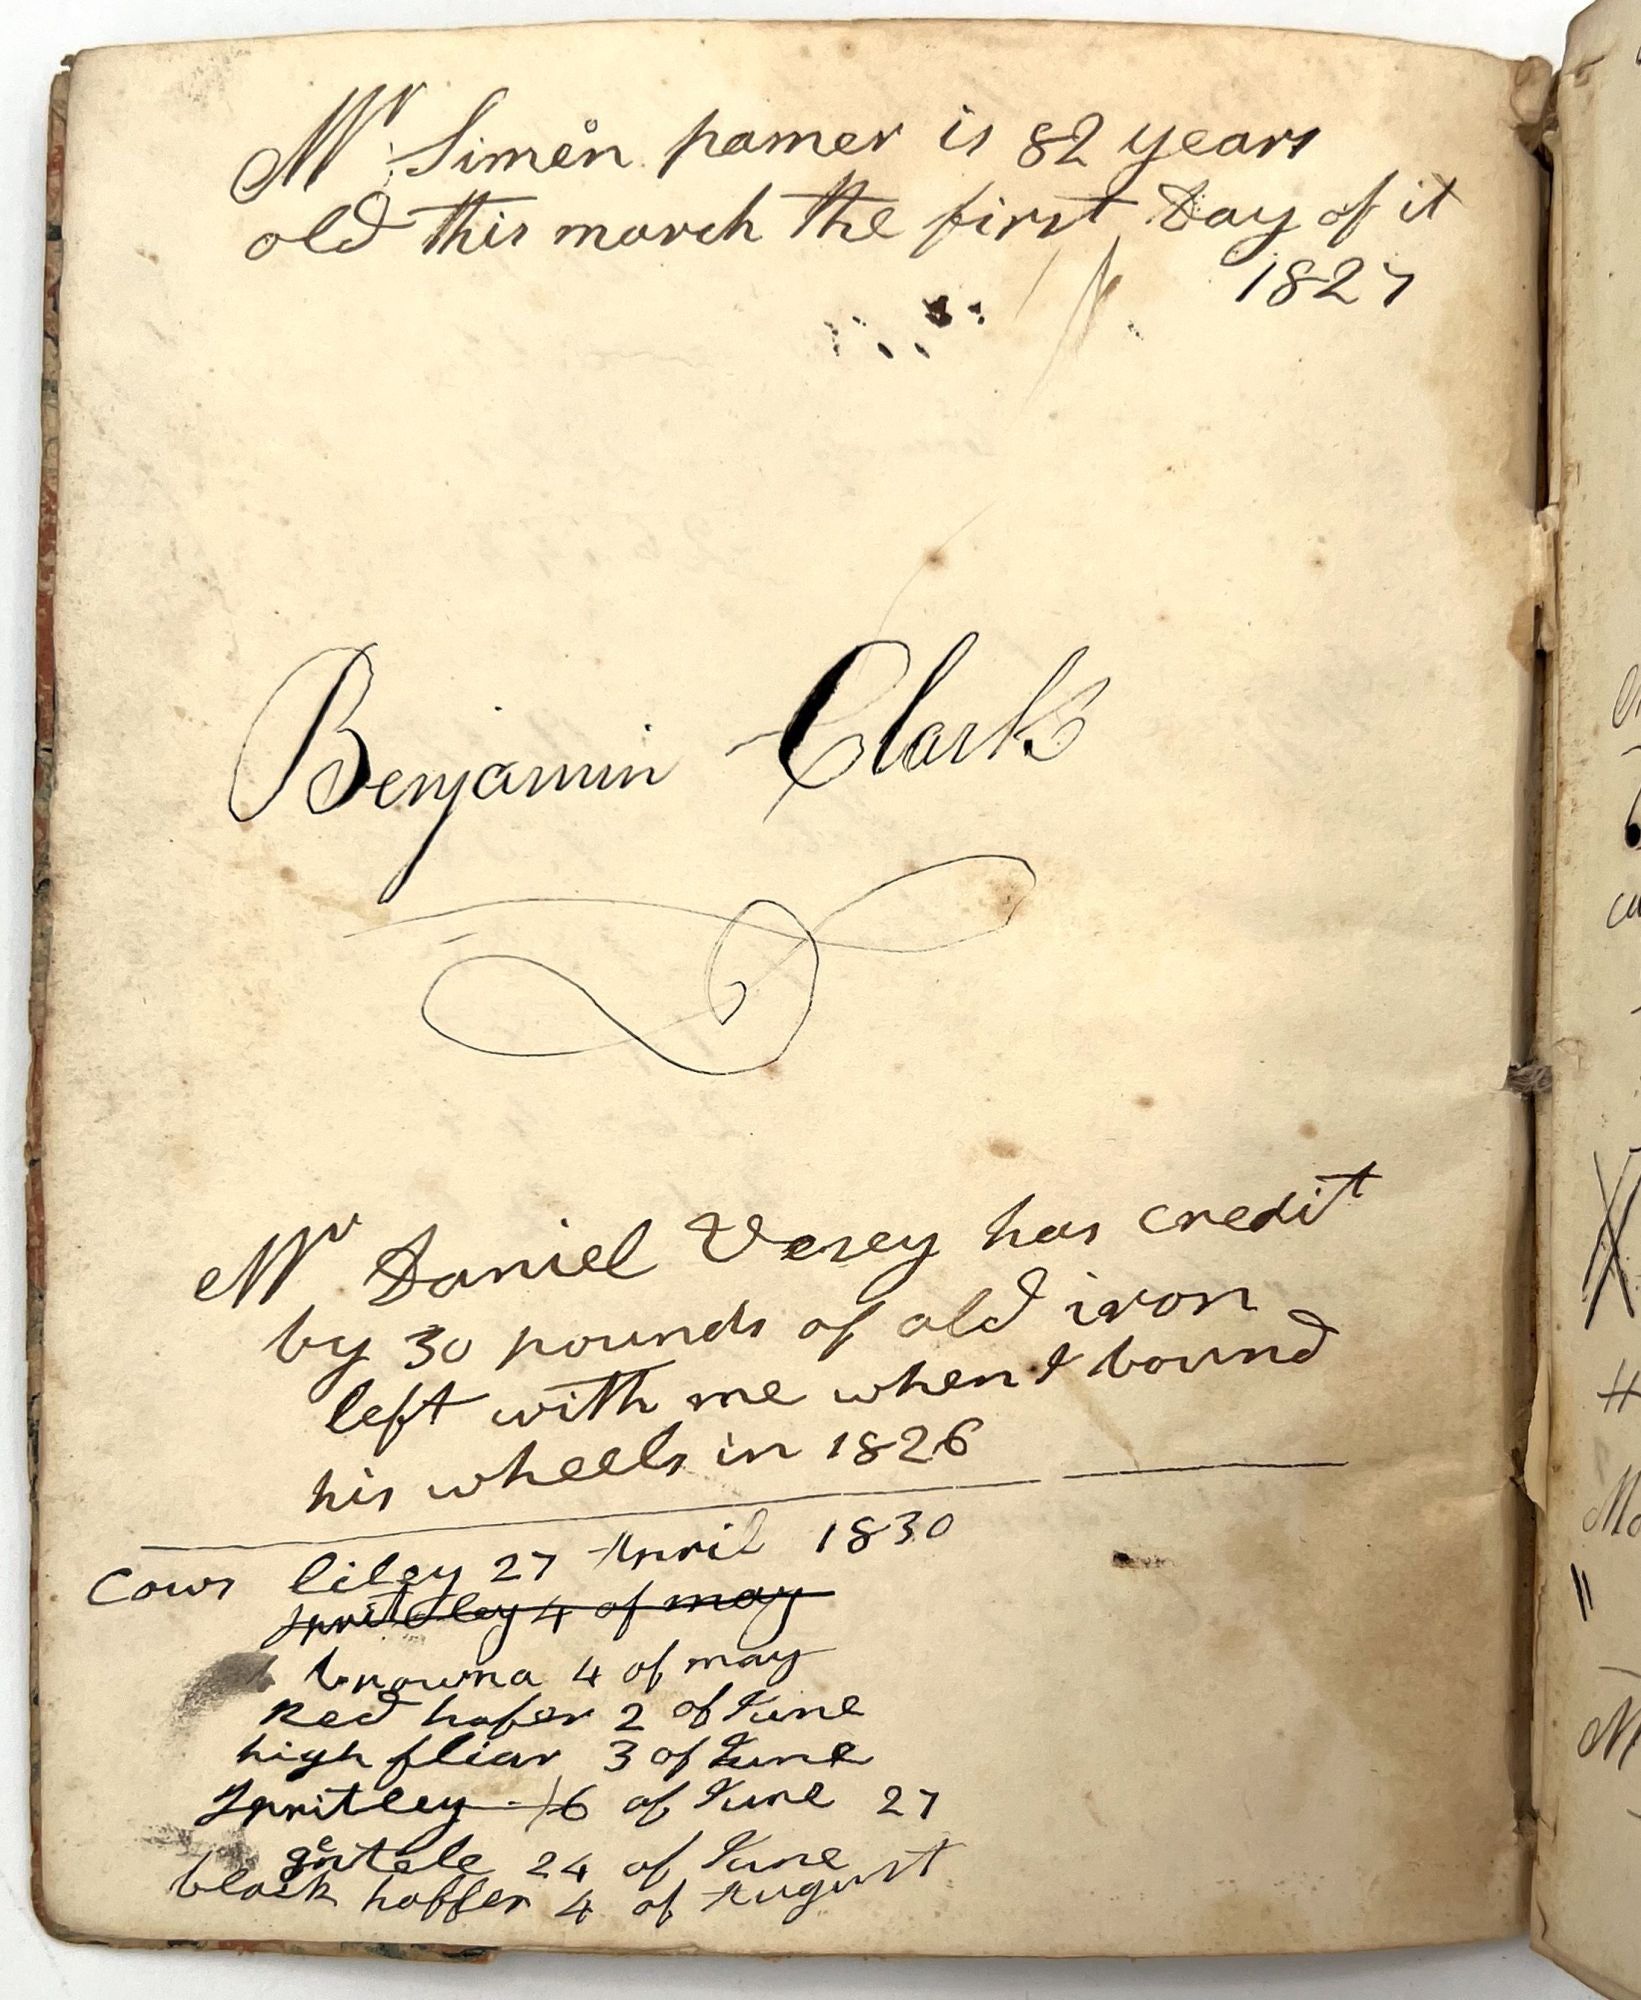 Mr Simon pamer is 82 years
old this march the first Day of it
1827
Benjamin Clark
Mr Daniel Vesey has credit
by 30 pounds of old iron
left with me when I bound
his wheels in 1826
cows liley 27 April 1830
spritley 4 of may
browna 4 of may
Red hafer 2 of June
high fliar 3 of June
Spritley 16 of June 27
gentele 24 of June
black haffer 4 of August